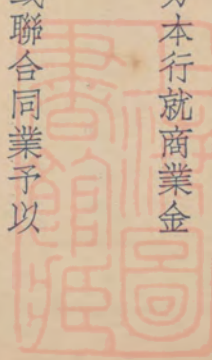 本行就商業金
聯合同業予以